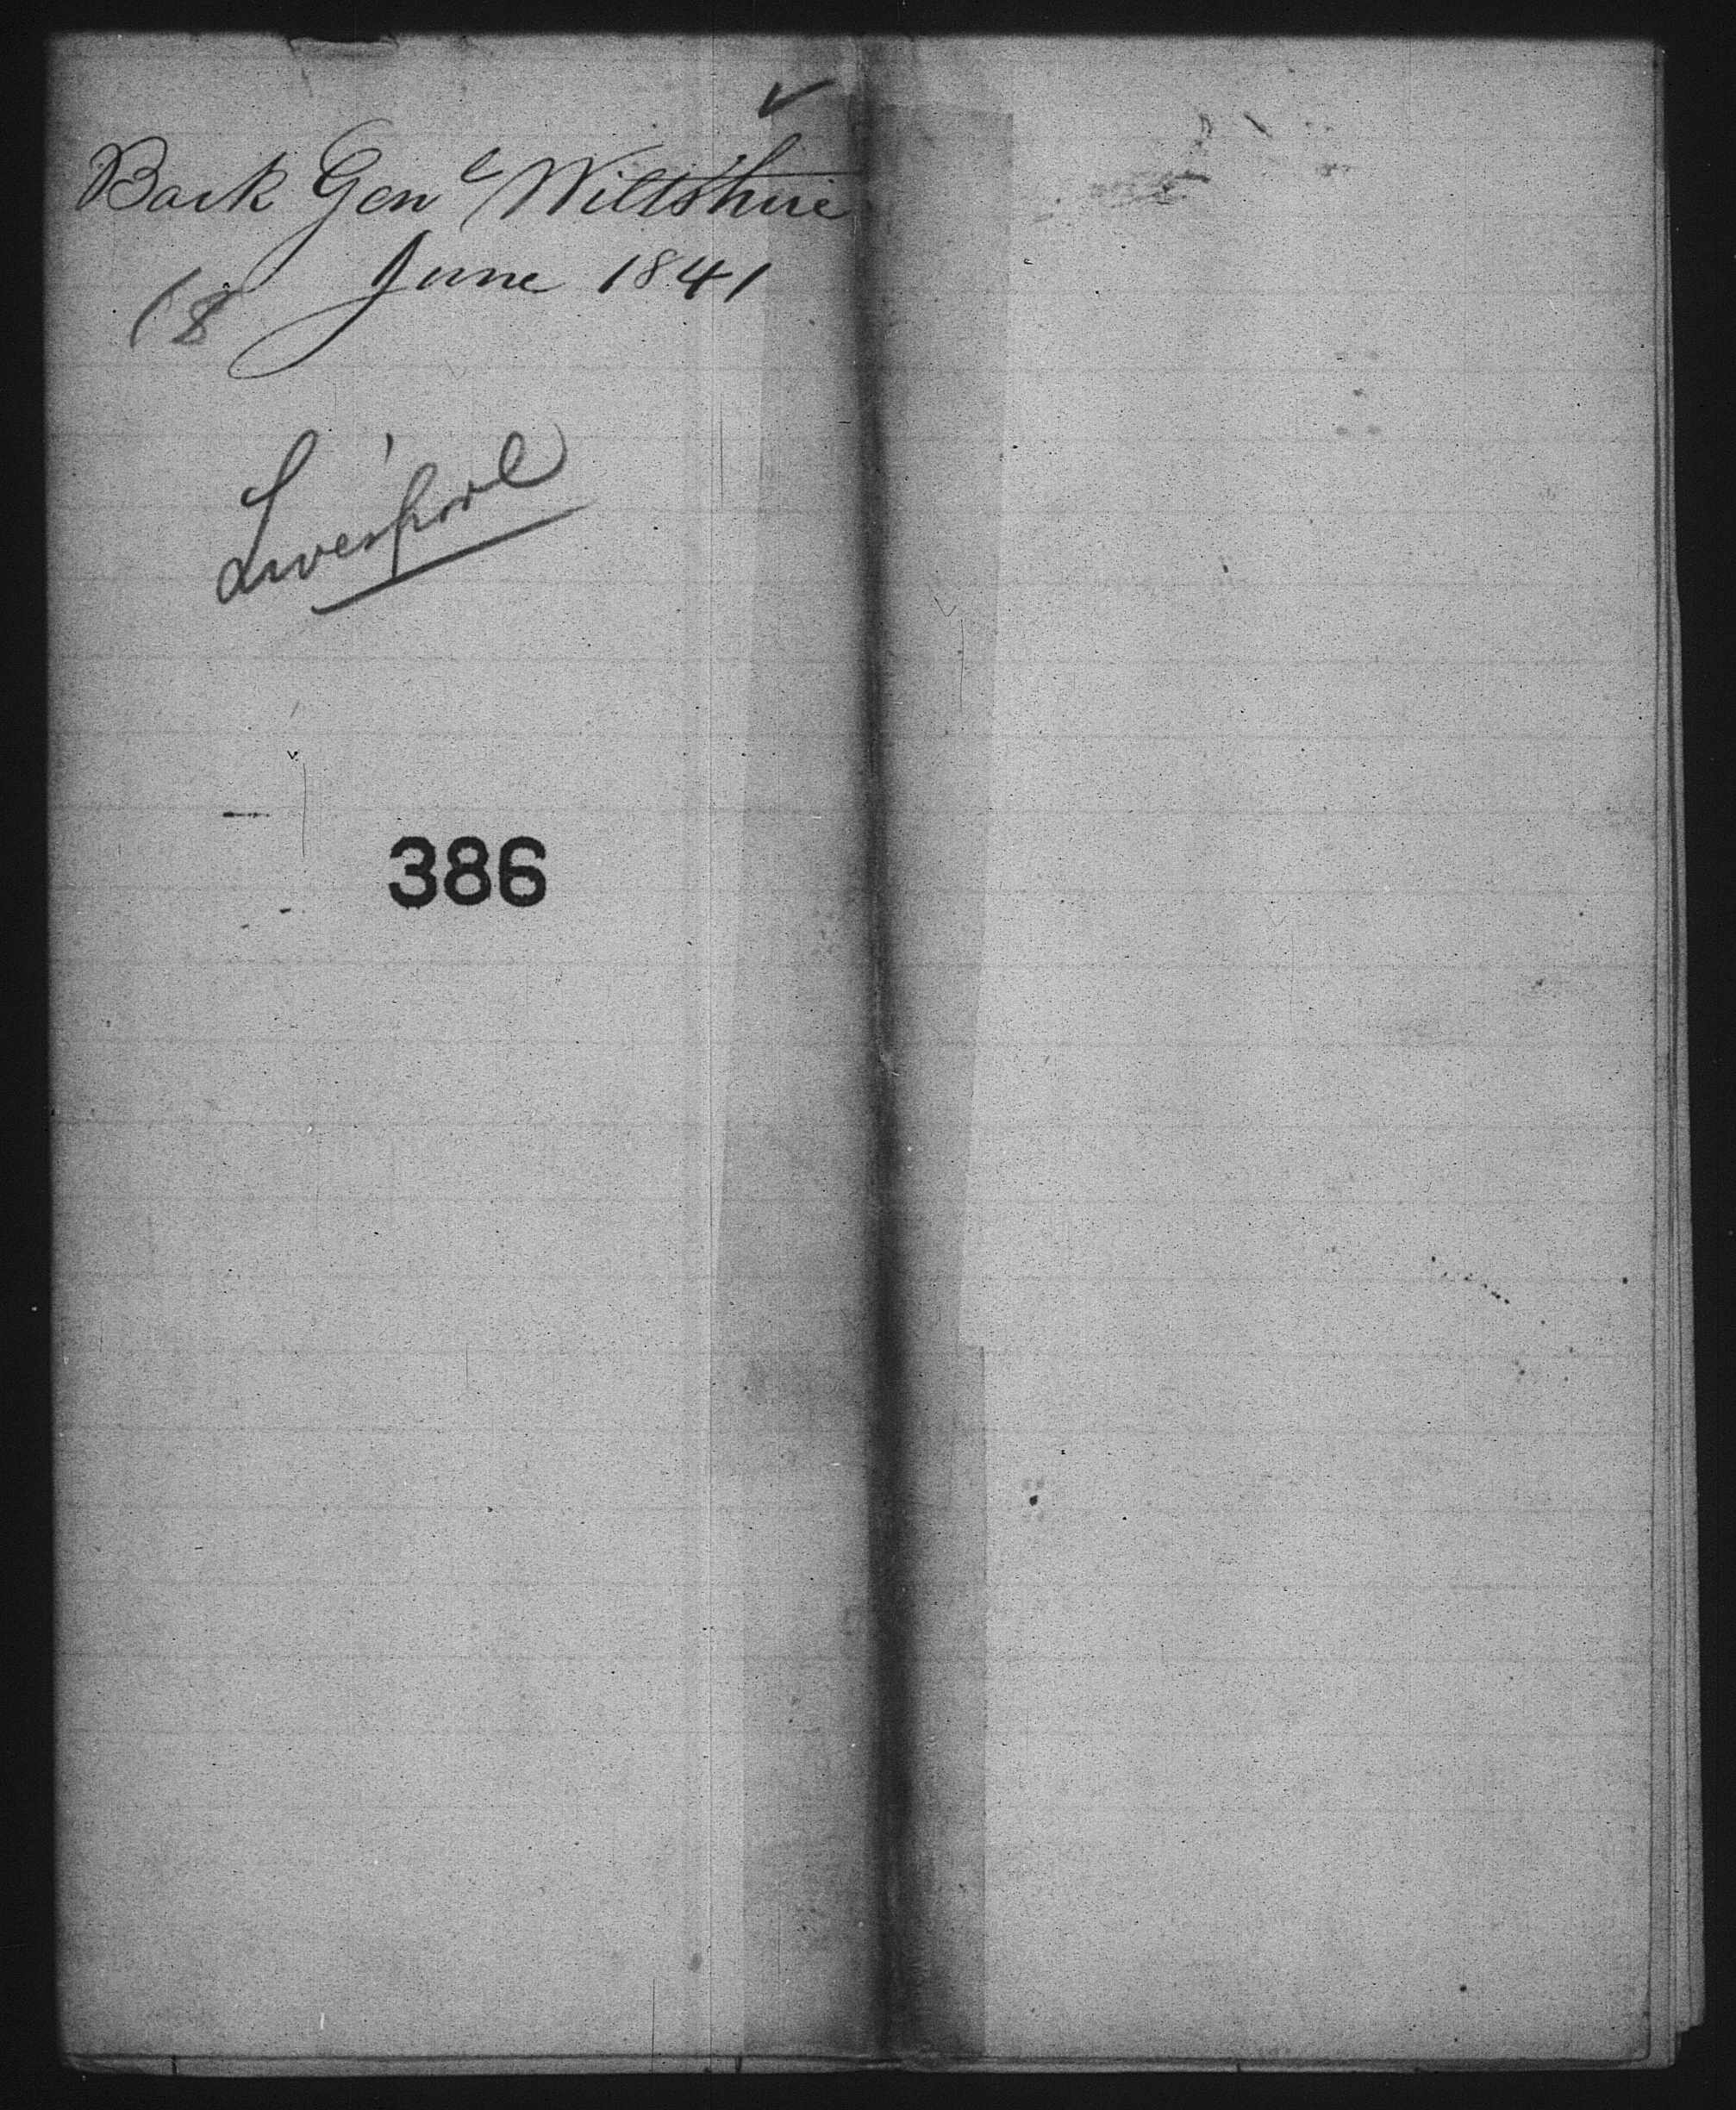 Bark Genl Wiltshire
June 1841
(8
Liverpool
386